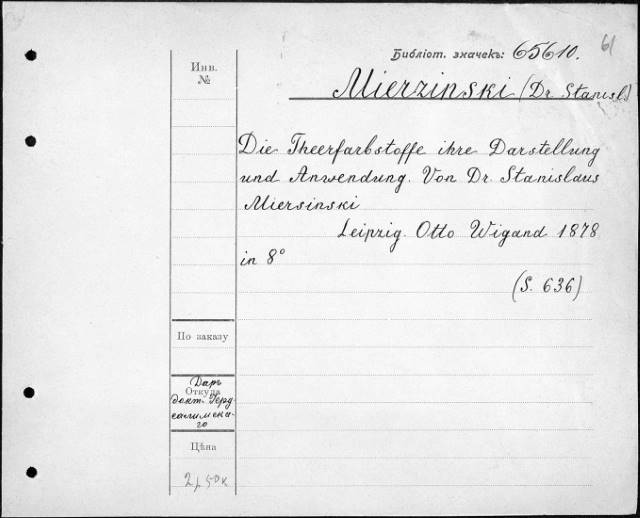 61
Библіот. значекъ: 65610.
Инв.
№
Mierzinski (Dr Stanisl.)
Die Theerfarbstoffe ihre Darstellung
und Anwendung. Von Dr. Stanislaus
Miersinski
Leipzig. Otto Wigand 1878
in 8°
(S. 636)
По заказу
Откуда
Даръ
докт.
Цѣна
2р 50к